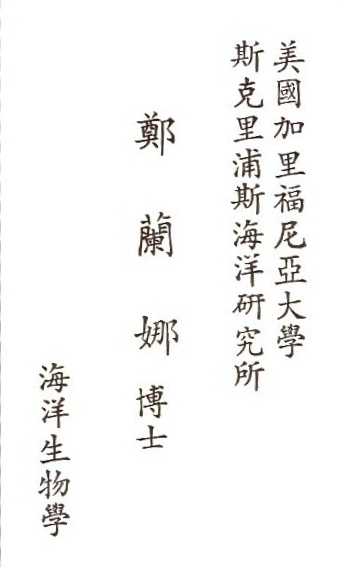 美國加里福尼亞大學
斯克里浦斯海洋研究所
鄭蘭娜博士
海洋生物學